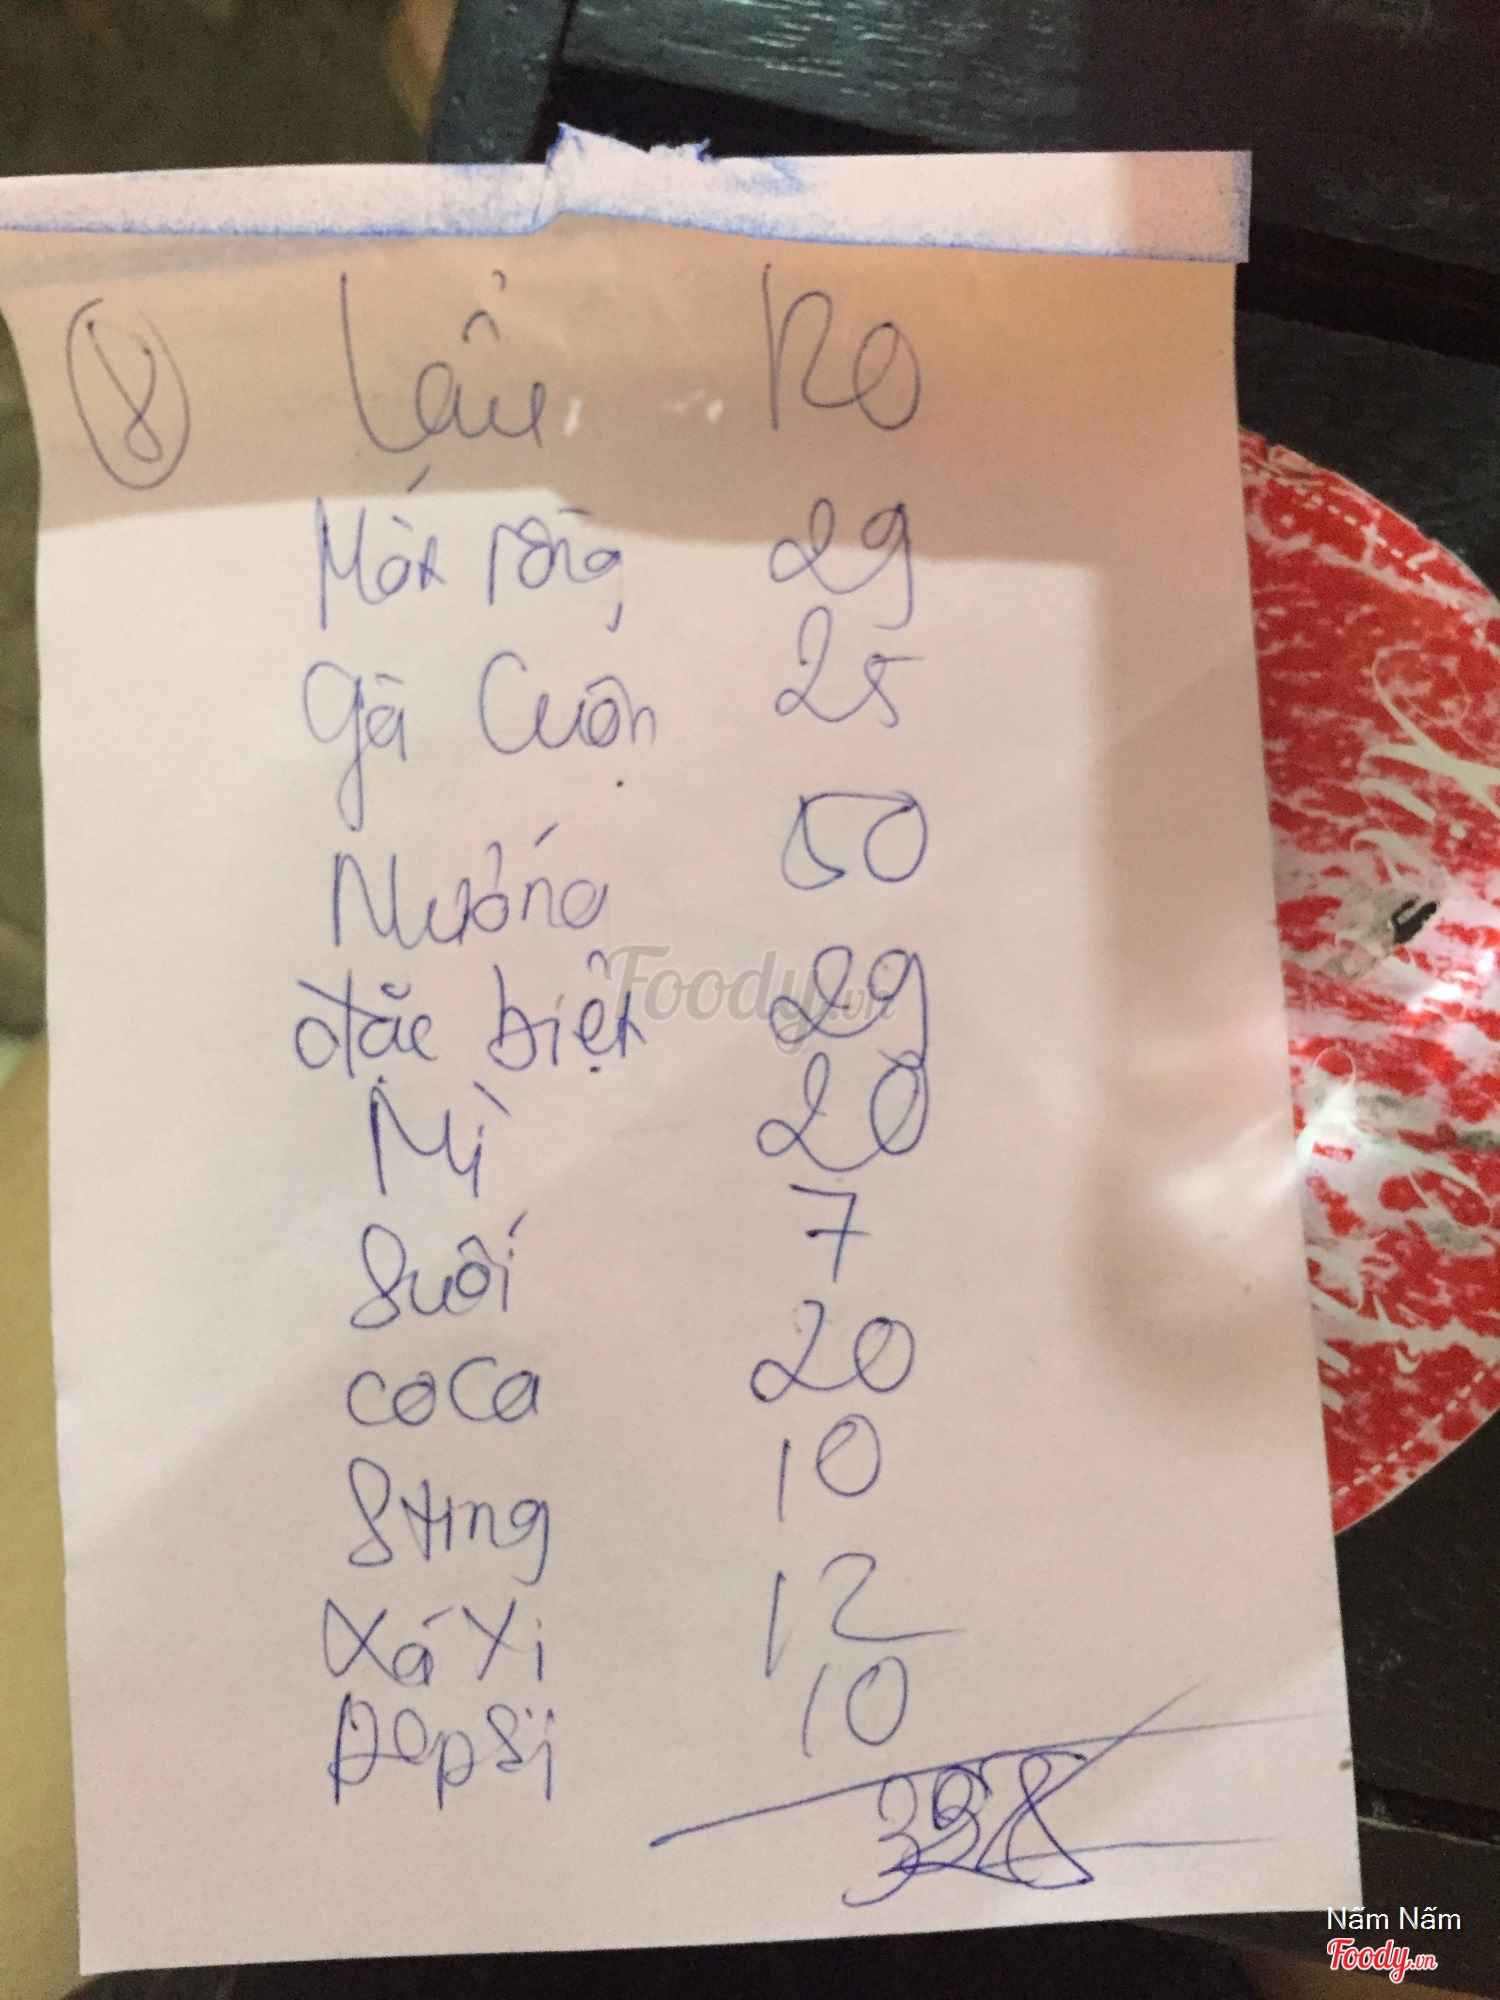 8 Lẩu 120
Mót rỗng 29
gà Cuộn 25
Nướng 50
đặc biệt 29
Mì 20
Suối 7
coca 20
Sting 10
Xá Xi 12
pepsi 10
Foody.vn
Nấm Nấm
Foody.vn